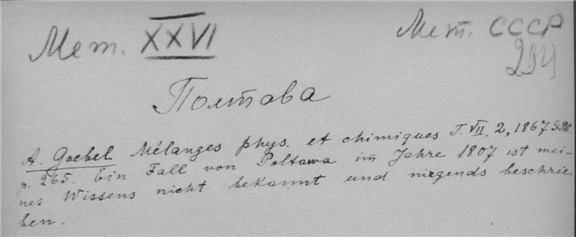 Мет. XXVI
Мет. СССР
294
Полтава
A. Goebel Mélanges phys. et chimiques T. VII, 2, 1867. S.Pb.
p. 265. Ein Fall von Poltawa im Jahre 1807 ist mei-
nes Wissens nicht bekannt und nirgends beschrie-
ben.